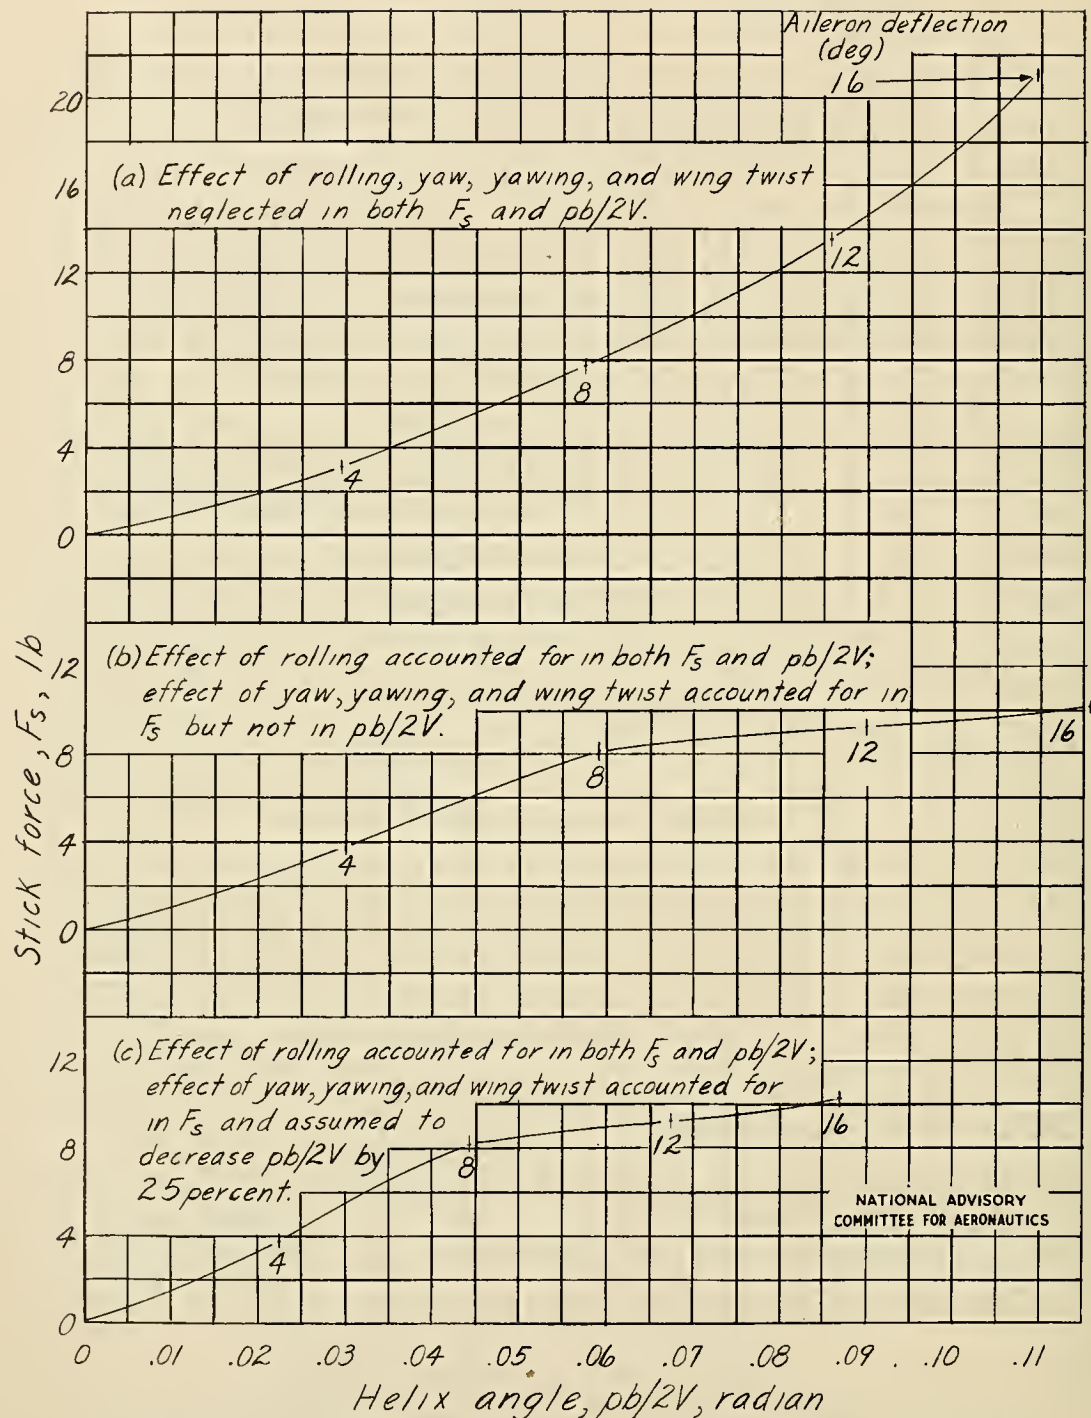 Aileron deflection
(deg)
16
20
(a) Effect of rolling, yaw, yawing, and wing twist
neglected in both Fs and pb/2V.
16
12
12
8
8
4
4
0
Stick force, Fs, lb
(b) Effect of rolling accounted for in both Fs and pb/2V;
effect of yaw, yawing, and wing twist accounted for in
Fs but not in pb/2V.
12
16
12
8
8
4
4
0
(c) Effect of rolling accounted for in both Fs and pb/2V;
effect of yaw, yawing, and wing twist accounted for
in Fs and assumed to
decrease pb/2V by
25 percent.
12
16
12
8
8
NATIONAL ADVISORY
COMMITTEE FOR AERONAUTICS
4
4
0
0 .01 .02 .03 .04 .05 .06 .07 .08 .09 .10 .11
Helix angle, pb/2V, radian